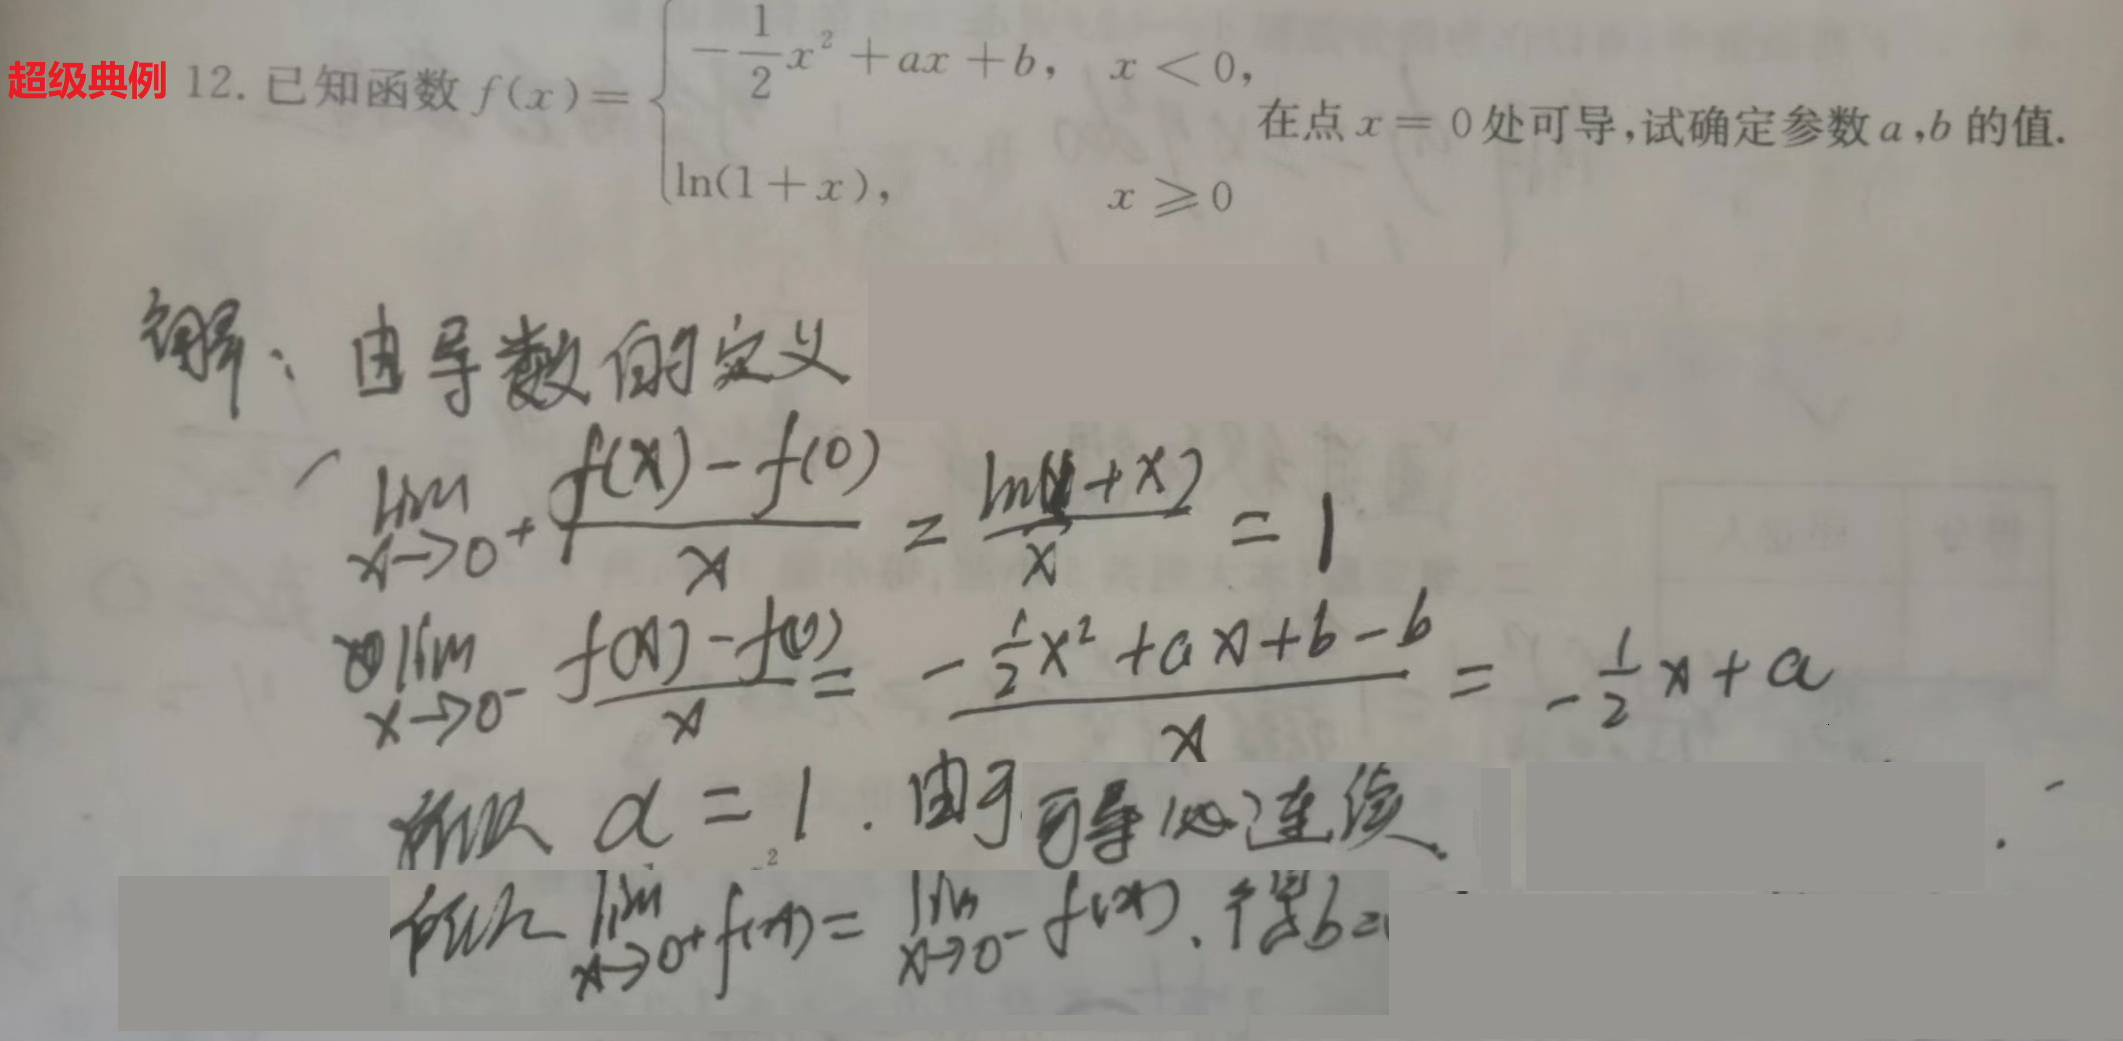 超级典例 12. 已知函数 f(x)={ -1/2 x² + ax + b, x < 0,
ln(1+x), x ⩾ 0
在点 x = 0 处可导,试确定参数 a,b 的值.
解: 由导数的定义
lim x→0⁺ (f(x)-f(0))/x = ln(1+x)/x = 1
lim x→0⁻ (f(x)-f(0))/x = (-1/2 x² + ax + b - b)/x = -1/2 x + a
所以 a = 1. 由于可导必连续.
所以 lim x→0⁺ f(x) = lim x→0⁻ f(x). 得 b =